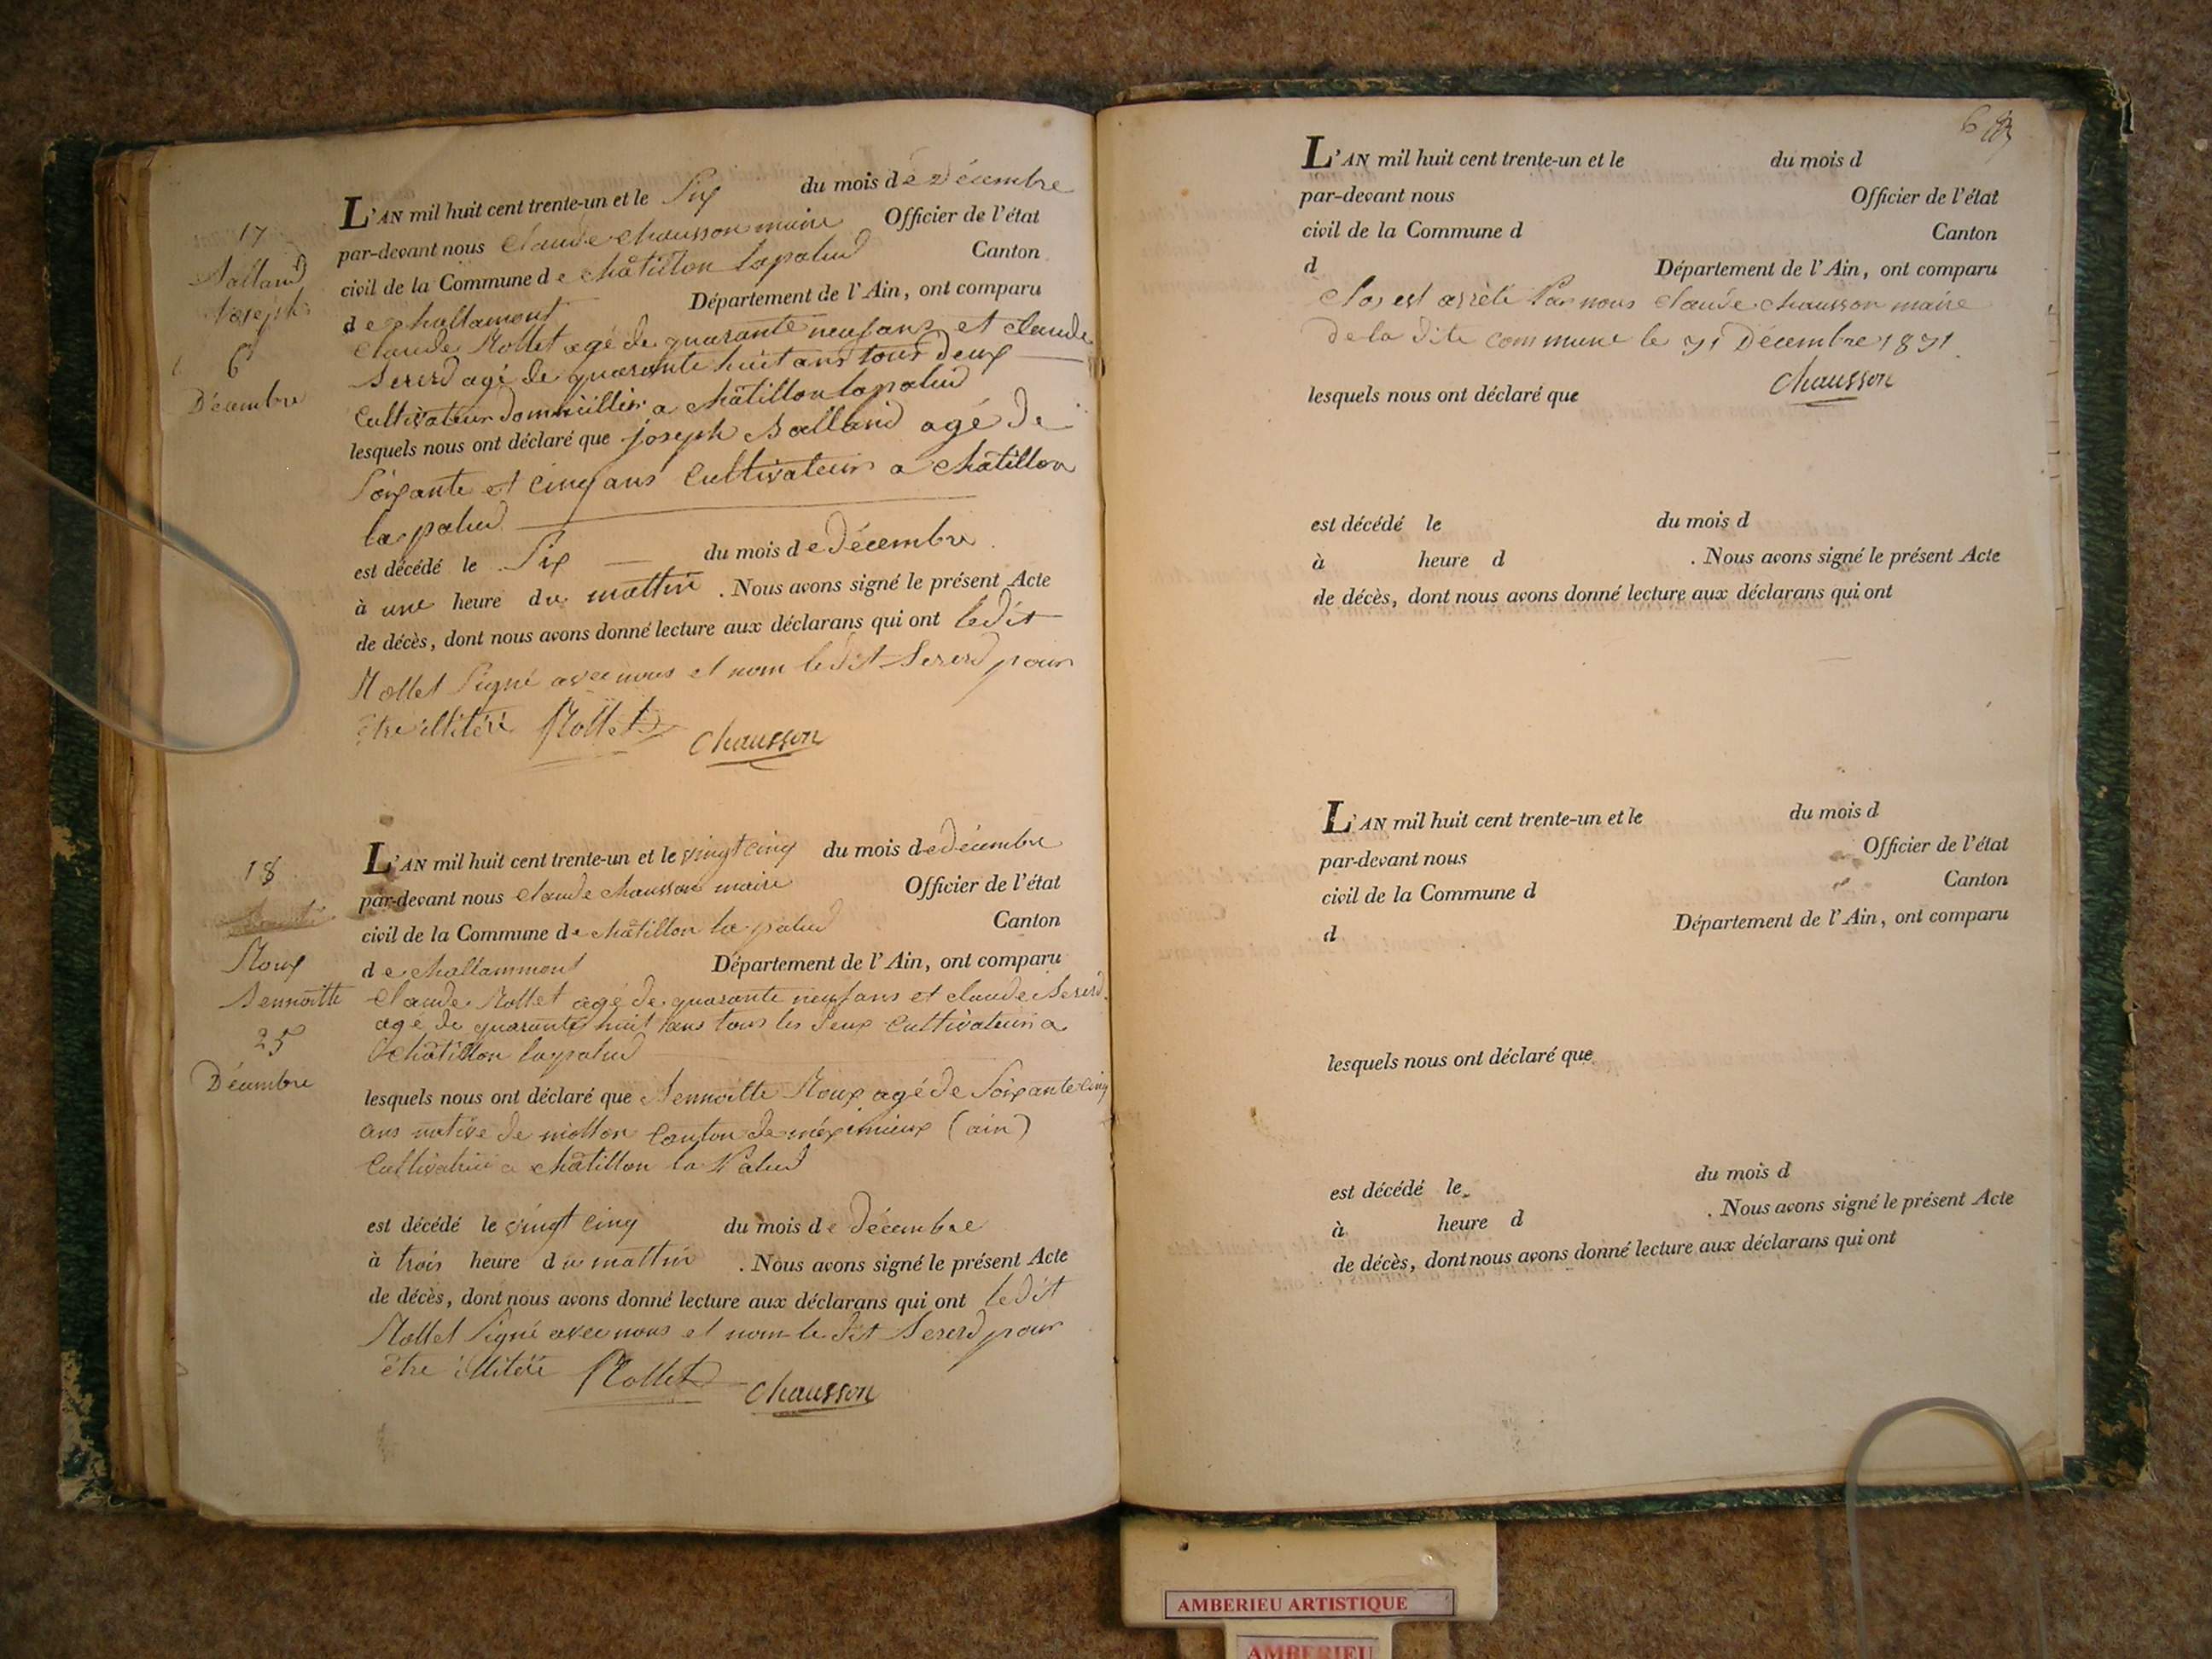 17
Balland
Joseph
6
Décembre
L'AN mil huit cent trente-un et le Six du mois de Décembre
par-devant nous Claude Chausson maire Officier de l'état
civil de la Commune de Châtillon lapalud Canton
de challamont Département de l'Ain, ont comparu
Claude Rollet agé de quarante neuf ans et claude
agé de quarante huit ans tous deux
Cultivateur domicillier a châtillon lapalud
lesquels nous ont déclaré que joseph Balland agé de
Soixante et cinq ans Cultivateur a châtillon
la palud
est décédé le Six du mois de Décembre
à une heure du mattin . Nous avons signé le présent Acte
de décès, dont nous avons donné lecture aux déclarans qui ont ledit
Rollet Signé avec nous et nom ledit pour
être illitéré Rollet Chausson
18
Roux
Bennoitte
25
Décembre
L'AN mil huit cent trente-un et le vingt cinq du mois de décembre
par-devant nous Claude chausson maire Officier de l'état
civil de la Commune de châtillon la palud Canton
de challammont Département de l'Ain, ont comparu
Claude Rollet agé de quarante neuf ans et claude
agé de quarante huit ans tous les deux Cultivateur a
Châtillon lapalud
lesquels nous ont déclaré que Bennoitte Roux agé de Soixante cinq
ans native de mollon Canton de méximieux (ain)
Cultivatrice a châtillon la Palud
est décédé le vingt cinq du mois de Décembre
à trois heure du mattin . Nous avons signé le présent Acte
de décès, dont nous avons donné lecture aux déclarans qui ont ledit
Rollet Signé avec nous et nom le dit pour
être illitéré Rollet Chausson
L'AN mil huit cent trente-un et le du mois d
par-devant nous Officier de l'état
civil de la Commune d Canton
d Département de l'Ain, ont comparu
Clos est arrêté Par nous Claude chausson maire
de la dite commune le 31 Décembre 1831
Chausson
lesquels nous ont déclaré que
est décédé le du mois d
à heure d . Nous avons signé le présent Acte
de décès, dont nous avons donné lecture aux déclarans qui ont
L'AN mil huit cent trente-un et le du mois d
par-devant nous Officier de l'état
civil de la Commune d Canton
d Département de l'Ain, ont comparu
lesquels nous ont déclaré que
est décédé le du mois d
à heure d . Nous avons signé le présent Acte
de décès, dont nous avons donné lecture aux déclarans qui ont
AMBERIEU ARTISTIQUE
AMBERIEU